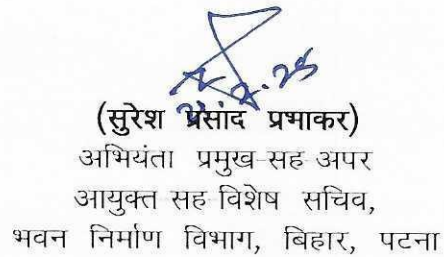 (सुरेश प्रसाद प्रभाकर)
अभियंता प्रमुख-सह अपर
आयुक्त सह विशेष सचिव,
भवन निर्माण विभाग, बिहार, पटना